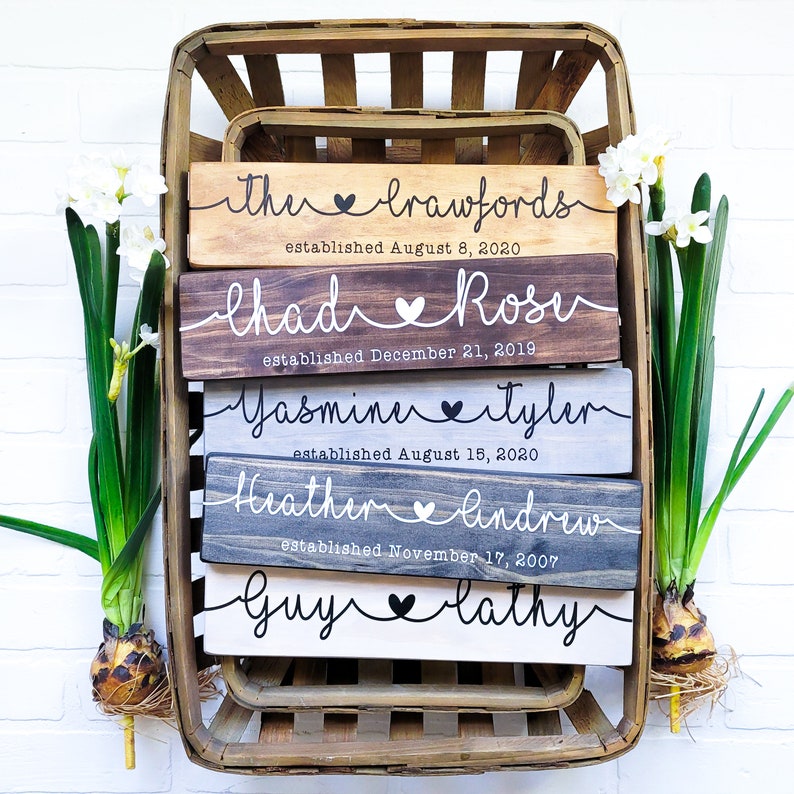 The Crawfords
established August 8, 2020
Chad Rose
established December 21, 2019
Yasmine Tyler
established August 15, 2020
Heather Andrew
established November 17, 2007
Guy Cathy